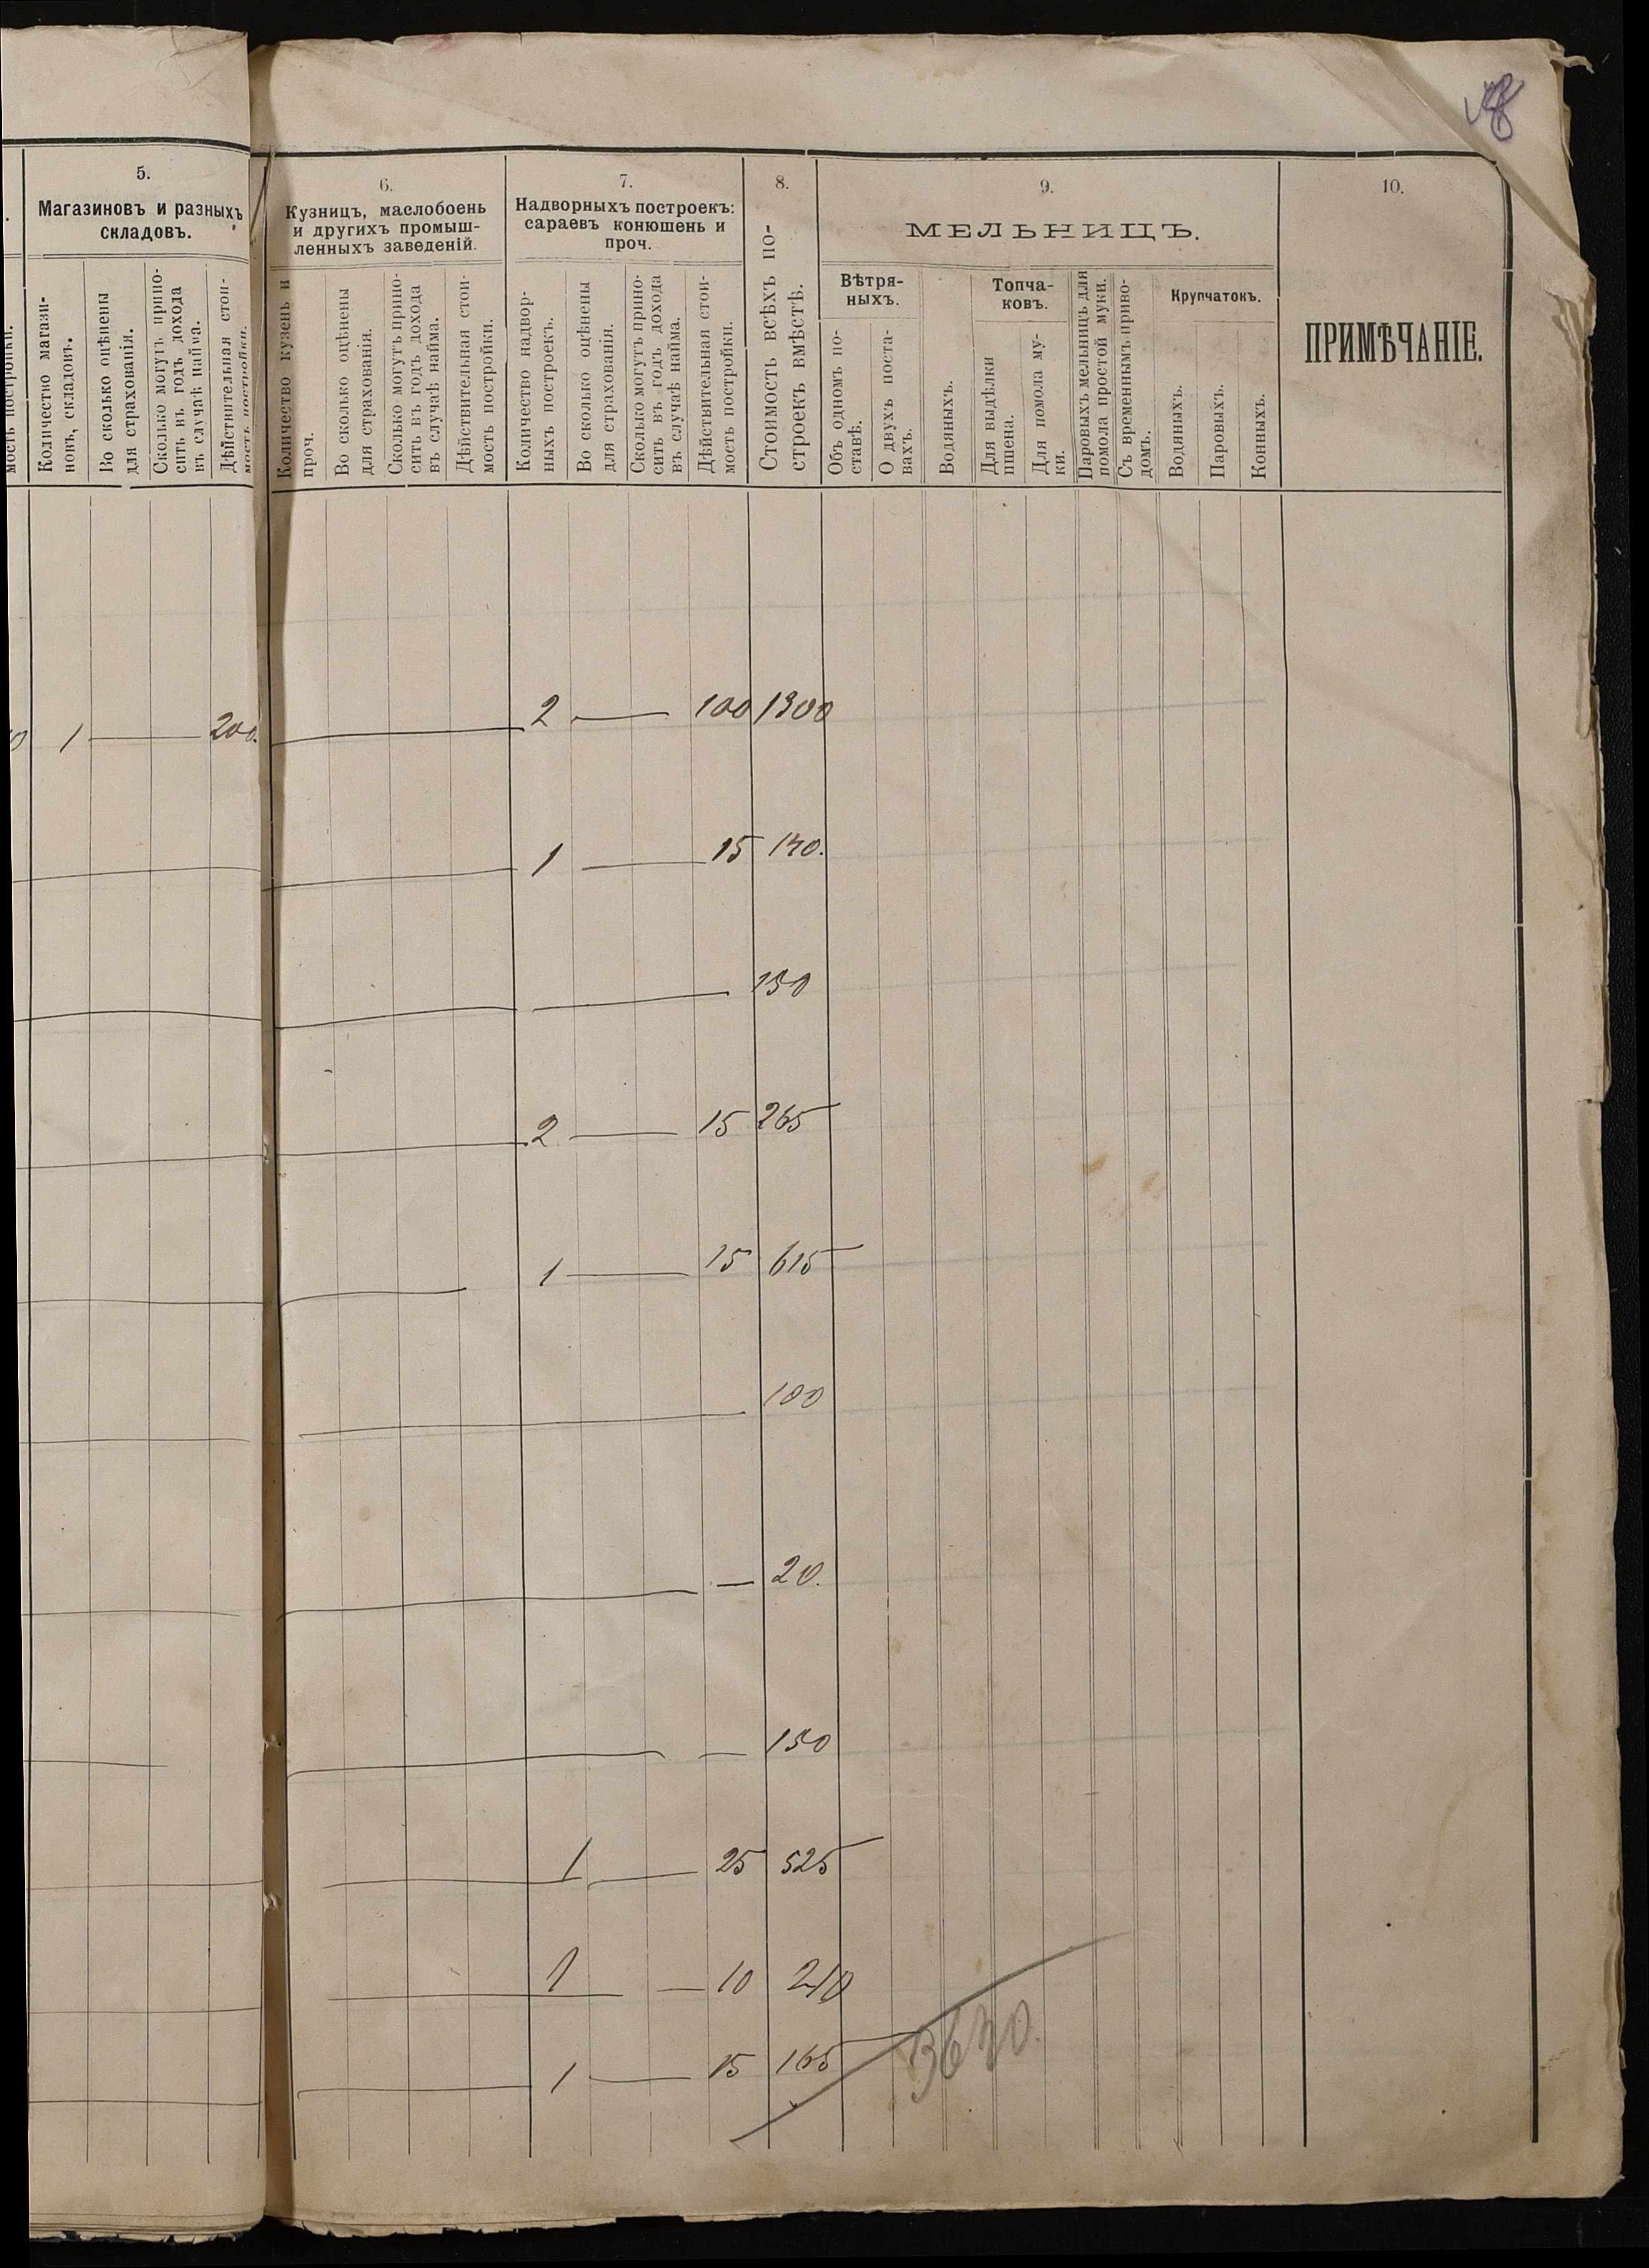 5.
Магазиновъ и разныхъ
складовъ.
мость постройки.
Количество магази-
новъ, складовъ.
Во сколько оцѣнены
для страхованія.
Сколько могутъ прино-
сить въ годъ дохода
въ случаѣ найма.
Дѣйствительная стои-
мость постройки.
6.
Кузницъ, маслобоень
и другихъ промыш-
ленныхъ заведеній.
Количество кузень и
проч.
Во сколько оцѣнены
для страхованія.
Сколько могутъ прино-
сить въ годъ дохода
въ случаѣ найма.
Дѣйствительная стои-
мость постройки.
7.
Надворныхъ построекъ:
сараевъ конюшень и
проч.
Количество надвор-
ныхъ построекъ.
Во сколько оцѣнены
для страхованія.
Сколько могутъ прино-
сить въ годъ дохода
въ случаѣ найма.
Дѣйствительная стои-
мость постройки.
8.
Стоимость всѣхъ по-
строекъ вмѣстѣ.
9.
МЕЛЬНИЦЪ.
Вѣтря-
ныхъ.
Объ одномъ по-
ставѣ.
О двухъ поста-
вахъ.
Водяныхъ.
Топча-
ковъ.
Для выдѣлки
пшена.
Для помола му-
ки.
Паровыхъ мельницъ для
помола простой муки.
Съ временнымъ приво-
домъ.
Крупчатокъ.
Водяныхъ.
Паровыхъ.
Конныхъ.
10.
ПРИМѢЧАНІЕ.
1 — 200. — 2 — 100 1300
1 — 15 140.
— 150
2 — 15 265
1 — 15 615
— 100
— 20.
— 150
1 — 25 525
1 — 10 210
1 — 15 165
3640.